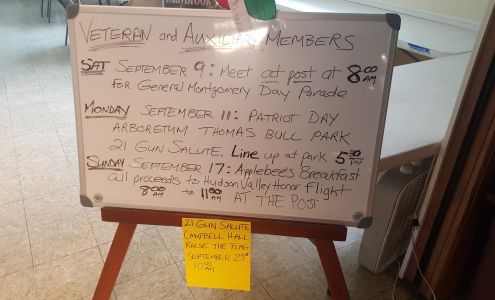 Maybrook
VETERAN and AUXILIARY MEMBERS
SAT SEPTEMBER 9: Meet at post at 8:00 AM
FOR General Montgomery Day Parade
MONDAY SEPTEMBER 11: PATRIOT DAY
ARBORETUM THOMAS BULL PARK
21 GUN SALUTE. Line up at park 5:30 PM
SUNDAY SEPTEMBER 17: Applebee's Breakfast
all proceeds to Hudson Valley Honor Flight
8:00 AM to 11:00 AM AT THE POST
21 GUN SALUTE
CAMPBELL HALL
RAISE THE FLAG
SEPTEMBER 23rd
10:00 AM